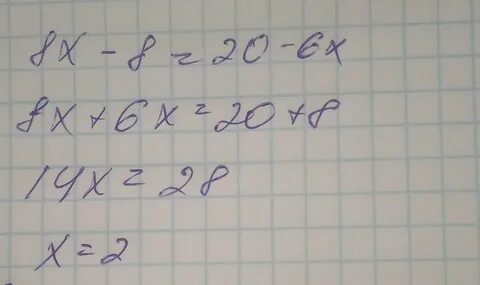 8x - 8 = 20 - 6x
8x + 6x = 20 + 8
14x = 28
x = 2